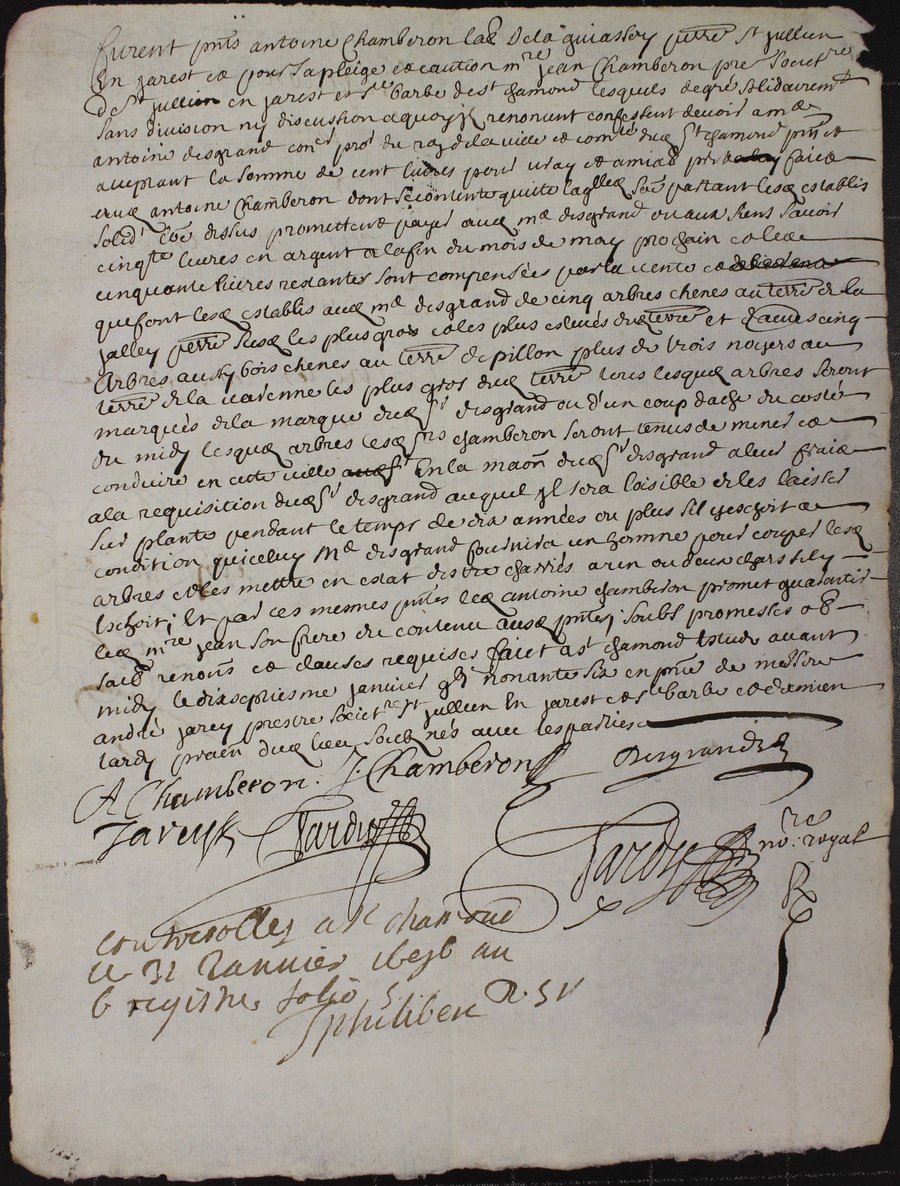 furent pnts antoine Chamberon lab de la guiassery pssr St Jullien
En jarest et pour sa pleige et caution mre jean Chamberon pre societre
de St jullien en jarest et Ste barbe de St chamond lesquels de gré solidairemt
sans division ny discution a quoy jl renoncent confessent devoir a me
antoine desgrand conr procr du roy de la ville et comté dud St chamond pnt et
acceptant la somme de cent livres pour vray et amiab pret faict
aud antoine Chamberon dont se contente quite lesd partant lesd establis
solidt co dessus promettent payer aud me desgrand ou aux siens savoir
cinqte livres en argent a la fin du mois de may prochain et les
cinquante livres restantes sont compensées par la vente
que font lesd establis aud me desgrand de cinq arbres chenes au terre de la
jalley les plus gros et les plus eslevés dud terre et d'autres cinq
arbres aussy bois chenes au terre de pillon plus de trois noyers au
terre de la varenne les plus gros dud terre tous lesqud arbres seront
marqués de la marque dud sr desgrand ou d'un coup dache du costé
du midy lesqud arbres lesd srs chamberon seront tenus de mener et
conduire en cette ville En la maon dud sr desgrand a leur fraix
a la requisition dud sr desgrand auquel jl sera loisible de les laisser
sur plante pendant le temps de dix années ou plus sil y eschoit a
condition quiceluy Me desgrand fournira un homme pour couper lesd
arbres et les mettre en estat destre charriés a un ou deux chars sil y
Eschoit; Et par ces mesmes pntes led antoine chamberon promet guarantir
led mre jean son frere du contenu ausd pntes; soubs promesses ob
renons et clauses requises faict a St chamond Estude avant
midy le dixseptiesme janvier nonante six en pnce de messire
andré jarey prestre societre St jullien En jarest et Ste barbe et damien
tardy pratien dud lieu soubsnés avec les parties
A Chamberon. J. Chamberon Desgrand
Jarey Tardy Tardy nore royal
Controllez a St chamond
ce 31 Janvier 1696 au
6 registre folio 5
philibert R. 5s